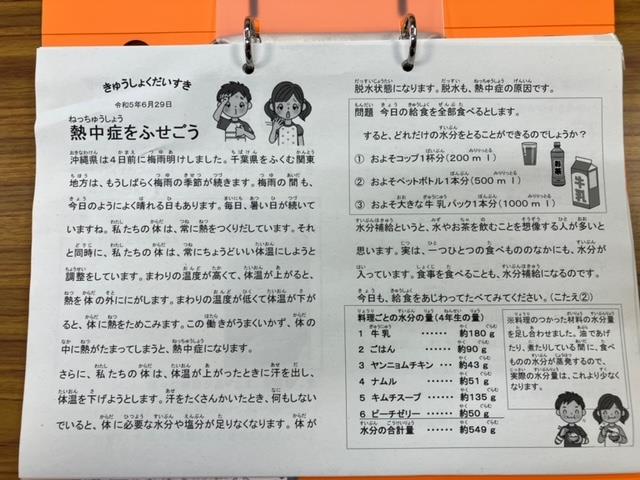 きゅうしょくだいすき
令和5年6月29日
熱中症をふせごう
沖縄県は4日前に梅雨明けしました。千葉県をふくむ関東
地方は、もうしばらく梅雨の季節が続きます。梅雨の間も、
今日のようによく晴れる日もあります。毎日、暑い日が続いて
いますね。私たちの体は、常に熱をつくりだしています。それ
と同時に、私たちの体は、常にちょうどいい体温にしようと
調整をしています。まわりの温度が高くて、体温が上がると、
熱を体の外ににがします。まわりの温度が低くて体温が下が
ると、体に熱をためこみます。この働きがうまくいかず、体の
中に熱がたまってしまうと、熱中症になります。
さらに、私たちの体は、体温が上がったときに汗を出し、
体温を下げようとします。汗をたくさんかいたとき、何もしない
でいると、体に必要な水分や塩分が足りなくなります。体が
脱水状態になります。脱水も、熱中症の原因です。
問題 今日の給食を全部食べるとします。
すると、どれだけの水分をとることができるのでしょうか?
① およそコップ1杯分(200ml)
② およそペットボトル1本分(500ml)
③ およそ大きな牛乳パック1本分(1000ml)
お茶
牛乳
水分補給というと、水やお茶を飲むことを想像する人が多いと
思います。実は、一つひとつの食べもののなかにも、水分が
入っています。食事を食べることも、水分補給になるのです。
今日も、給食をあじわってたべてみてください。(こたえ②)
料理ごとの水分の量(4年生の量)
1 牛乳 …… 約180g
2 ごはん …… 約90g
3 ヤンニョムチキン …… 約43g
4 ナムル …… 約51g
5 キムチスープ …… 約135g
6 ピーチゼリー …… 約50g
水分の合計量 …… 約549g
※料理のつかった材料の水分量
を足し合わせました。油であげ
たり、煮たりしている間に、食べ
ものの水分が蒸発するので、
実際の水分量は、これより少なく
なります。